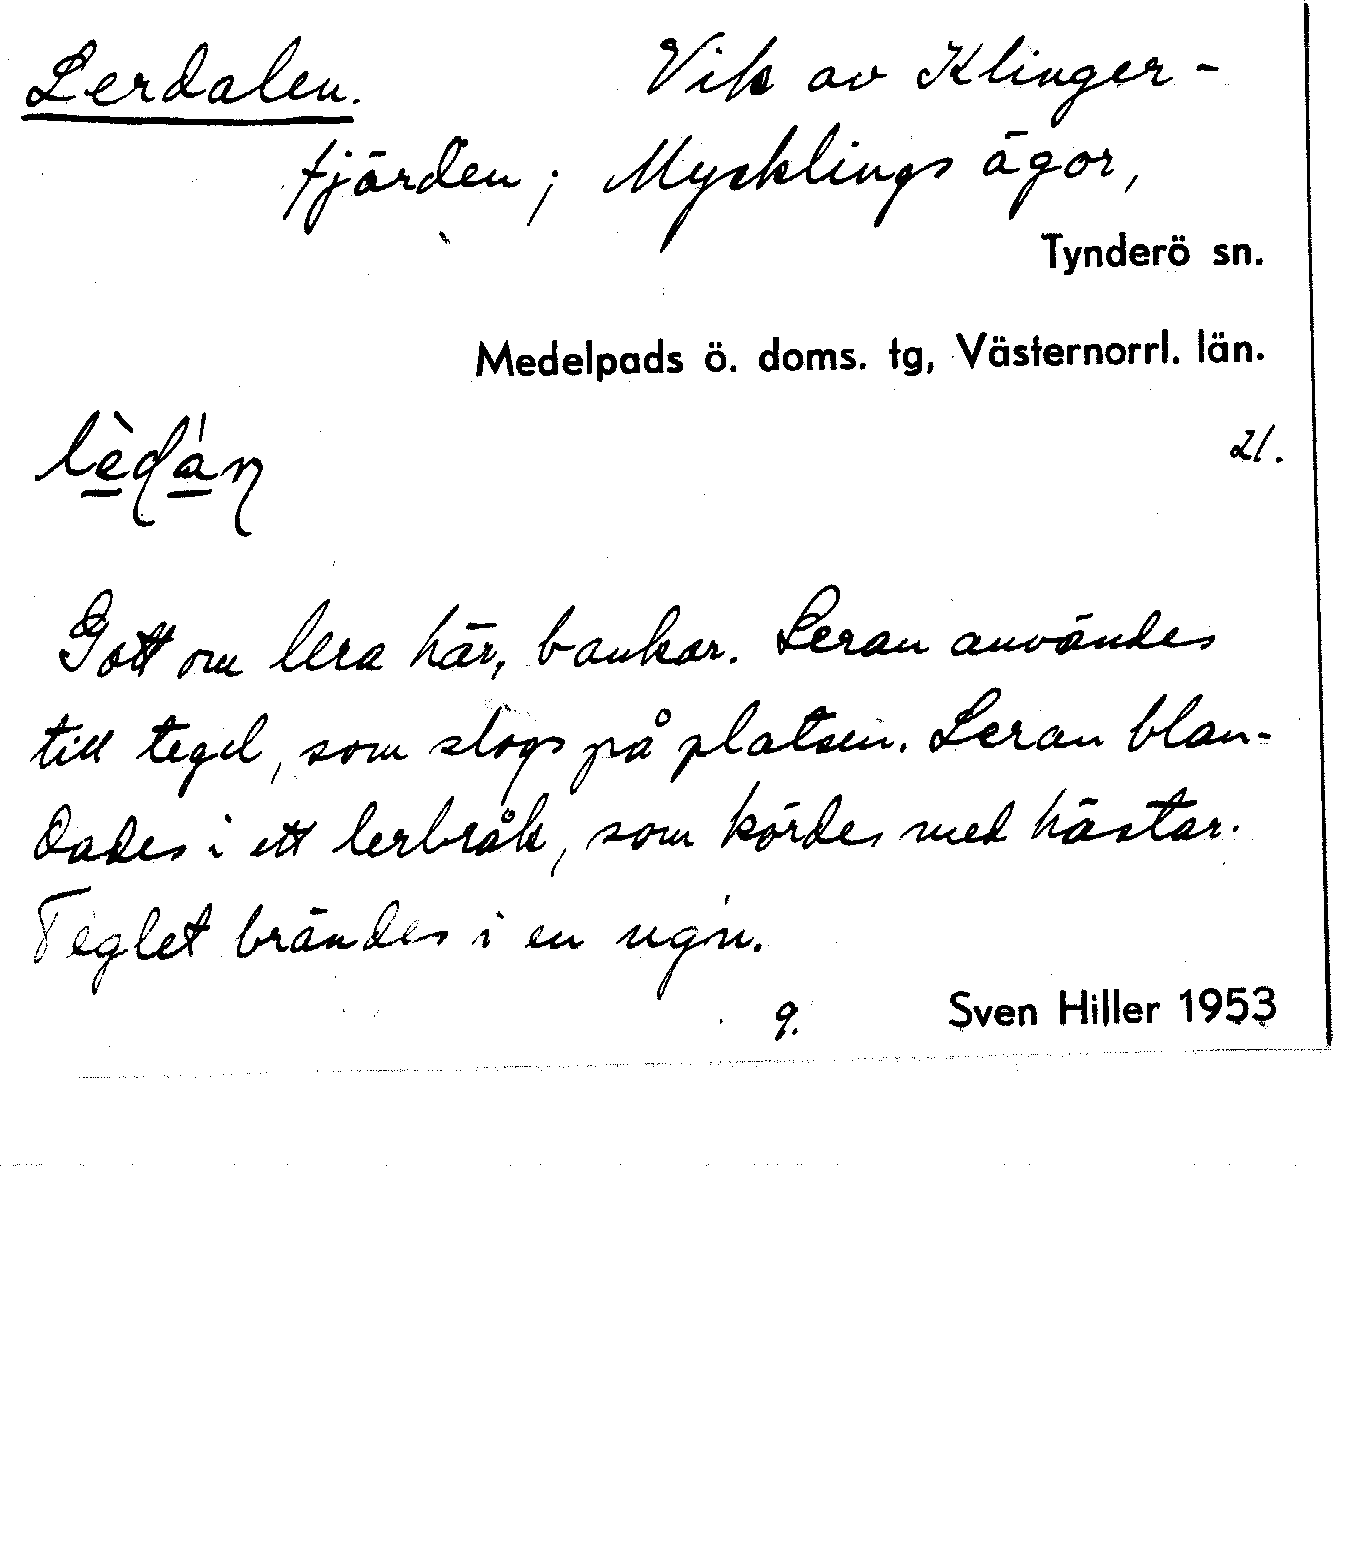 Lerdalen. Vik av Klinger-
fjärden; Mycklings ägor,
Tynderö sn.
Medelpads ö. doms. tg, Västernorrl. län.
21.
Gott om lera här, bankar. Leran användes
till tegel, som slogs på platsen. Leran blan-
dades i ett lerbråk, som kördes med hästar.
Teglet brändes i en ugn.
9. Sven Hiller 1953